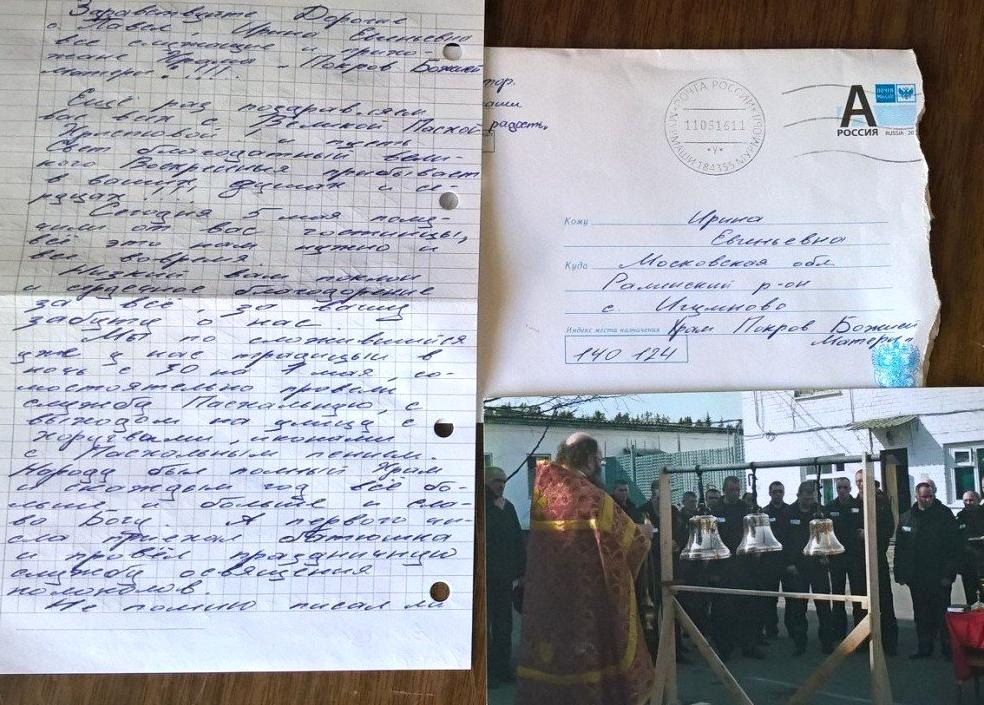 Здравствуйте Дорогие
о. Павел, Ирина Евгеньевна
все служащие и прихо-
жане Храма - Покров Божией
Матери. !!!.
Ещё раз поздравляем
вас всех с Великой Пасхой
Христовой и пусть
Свет благодатный вели-
кого Воскресния прибывает
в ваших душах и се-
рдцах !!!.
Сегодня 5 мая полу-
чили от вас гостинцы,
всё это нам нужно и
всё вовремя.
Низкий вам поклон
и сердечное благодарение
за всё, за вашу
заботу о нас.
Мы по сложившийся
уже у нас традиции в
ночь с 30 на 1 мая, са-
мостоятельно провели
службу Пасхальную, с
выходом на улицу с
хоругвами, иконами
с Пасхольным пением.
Народу был полный Храм
и с каждым год всё бо-
льше и больше и сла-
ва Богу. А первого чи-
сла приехал Батюшка
и провёл праздничную
службу освящения
колоколов.
Не помню писал ли
тор.
радость,
ПОЧТА РОССИИ
11051611
184355
А
РОССИЯ
RUSSIA · 20
ПОЧТА РОССИИ
Кому Ирина
Евгеньевна
Куда Московская обл
Раминский р-он
с Игумново
Индекс места назначения Храм Покров Божией
Матери
140 124